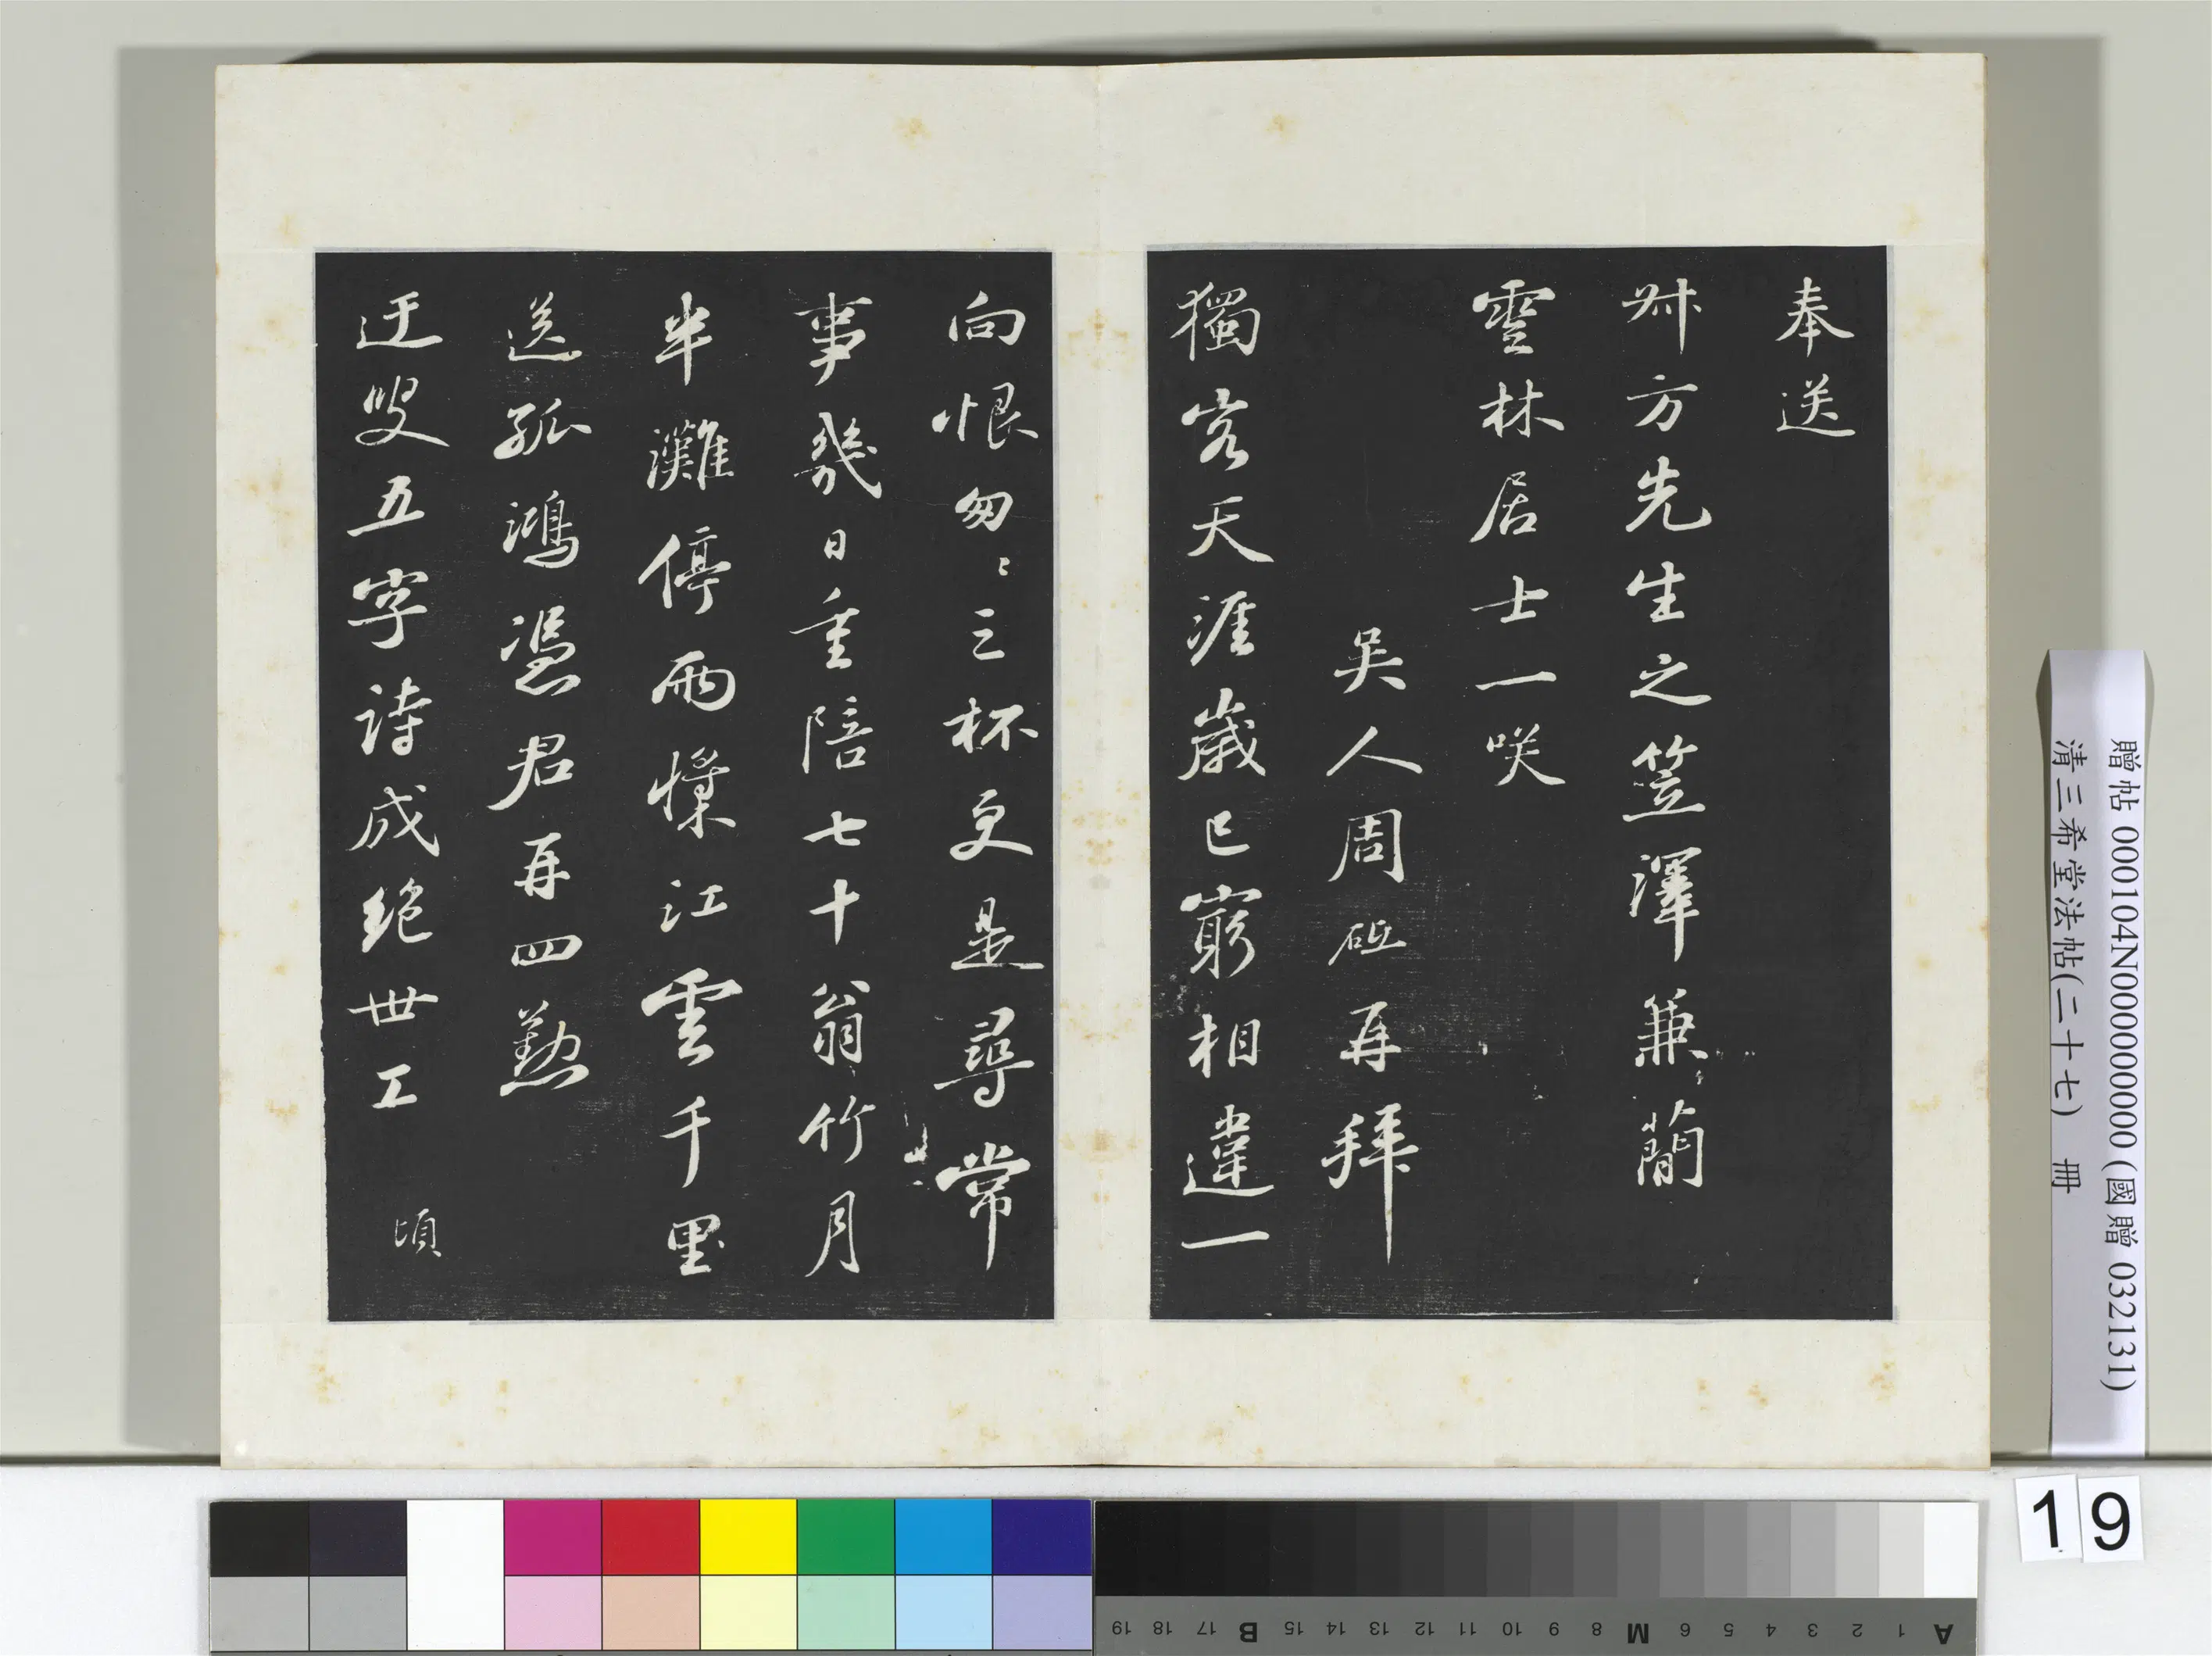 奉送
叔方先生之笠澤兼蕳
雲林居士一咲
吳人周砥再拜
獨客天涯歲已窮相違一
向恨匆〻三杯更是尋常
事幾日重陪七十翁竹月
半灘停雨檥江雲千里
送孤鴻憑君再四懃
迂叟五字詩成絕世工 頃
贈帖 000104N000000000 (國贈 032131)
清三希堂法帖(二十七) 冊
19
A 1 2 3 4 5 6 M 8 9 10 11 12 13 14 15 B 17 18 19